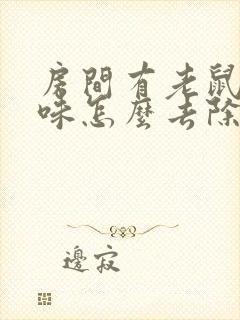 房間有老鼠
味怎麼去除
邊寂